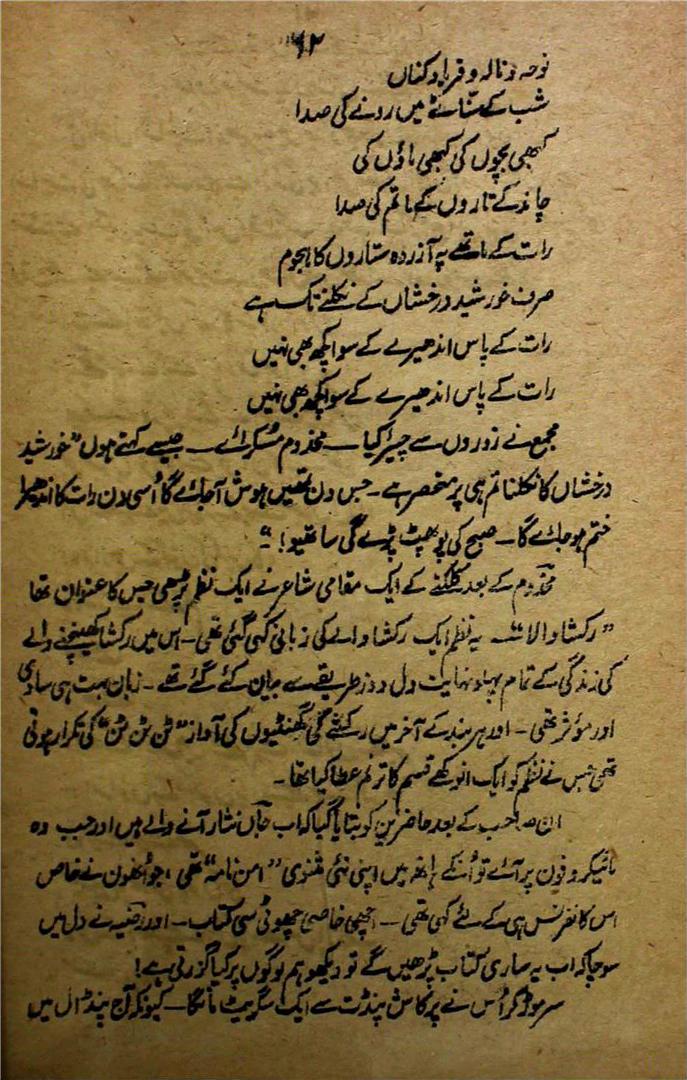 ۹۲
نوحہ و نالہ و فریاد کناں
شب کے سنّاٹے میں رونے کی صدا
کبھی بچوں کی کبھی ماؤں کی
چاند کے تاروں کے ماتم کی صدا
رات کے ماتھے پہ آزردہ ستاروں کا ہجوم
صرف خورشید درخشاں کے نکلنے تک ہے
رات کے پاس اندھیرے کے سوا کچھ بھی نہیں
رات کے پاس اندھیرے کے سوا کچھ بھی نہیں
مجمع نے زوروں سے چیئر کیا — مخدوم مُسکرائے — جیسے کہتے ہوں "خورشید
درخشاں کا نکلنا تم ہی پر منحصر ہے – جس دن تمہیں ہوش آجائے گا اُسی دن رات کا اندھیرا
ختم ہو جائے گا – صبح کی پو پھٹ پڑے گی ساتھیو! "
مخدوم کے بعد کلکتے کے ایک مقامی شاعر نے ایک نظم پڑھی جس کا عنوان تھا
"رکشا والا" یہ نظم ایک رکشا والے کی زبانی کہی گئی تھی – اس میں رکشا کھینچنے والے
کی زندگی کے تمام پہلو نہایت دل دوز طریقے سے بیان کئے گئے تھے – زبان بہت ہی سادی
اور مؤثر تھی – اور ہر بند کے آخر میں رکشے کی گھنٹیوں کی آواز "ٹن ٹن ٹن" کی تکرار ہوتی
تھی جس نے نظم کو ایک انوکھے قسم کا ترنم عطا کیا تھا –
ان صاحب کے بعد حاضرین کو بتایا گیا کہ اب جاں نثار آنے والے ہیں اور جب وہ
مائیکروفون پر آئے تو اُنکے ہاتھ میں اپنی نئی مثنوی "امن نامہ" تھی ، جو اُنھوں نے خاص
اس کانفرنس ہی کے لئے کہی تھی – اچھی خاصی چھوٹی سی کتاب – اور رضیہ نے دل میں
سوچا کہ اب یہ ساری کتاب پڑھیں گے تو دیکھو ہم لوگوں پر کیا گزرتی ہے!
سر موڑ کر اُس نے پرکاش پنڈت سے ایک سگریٹ مانگا – کیونکہ آج پنڈال میں